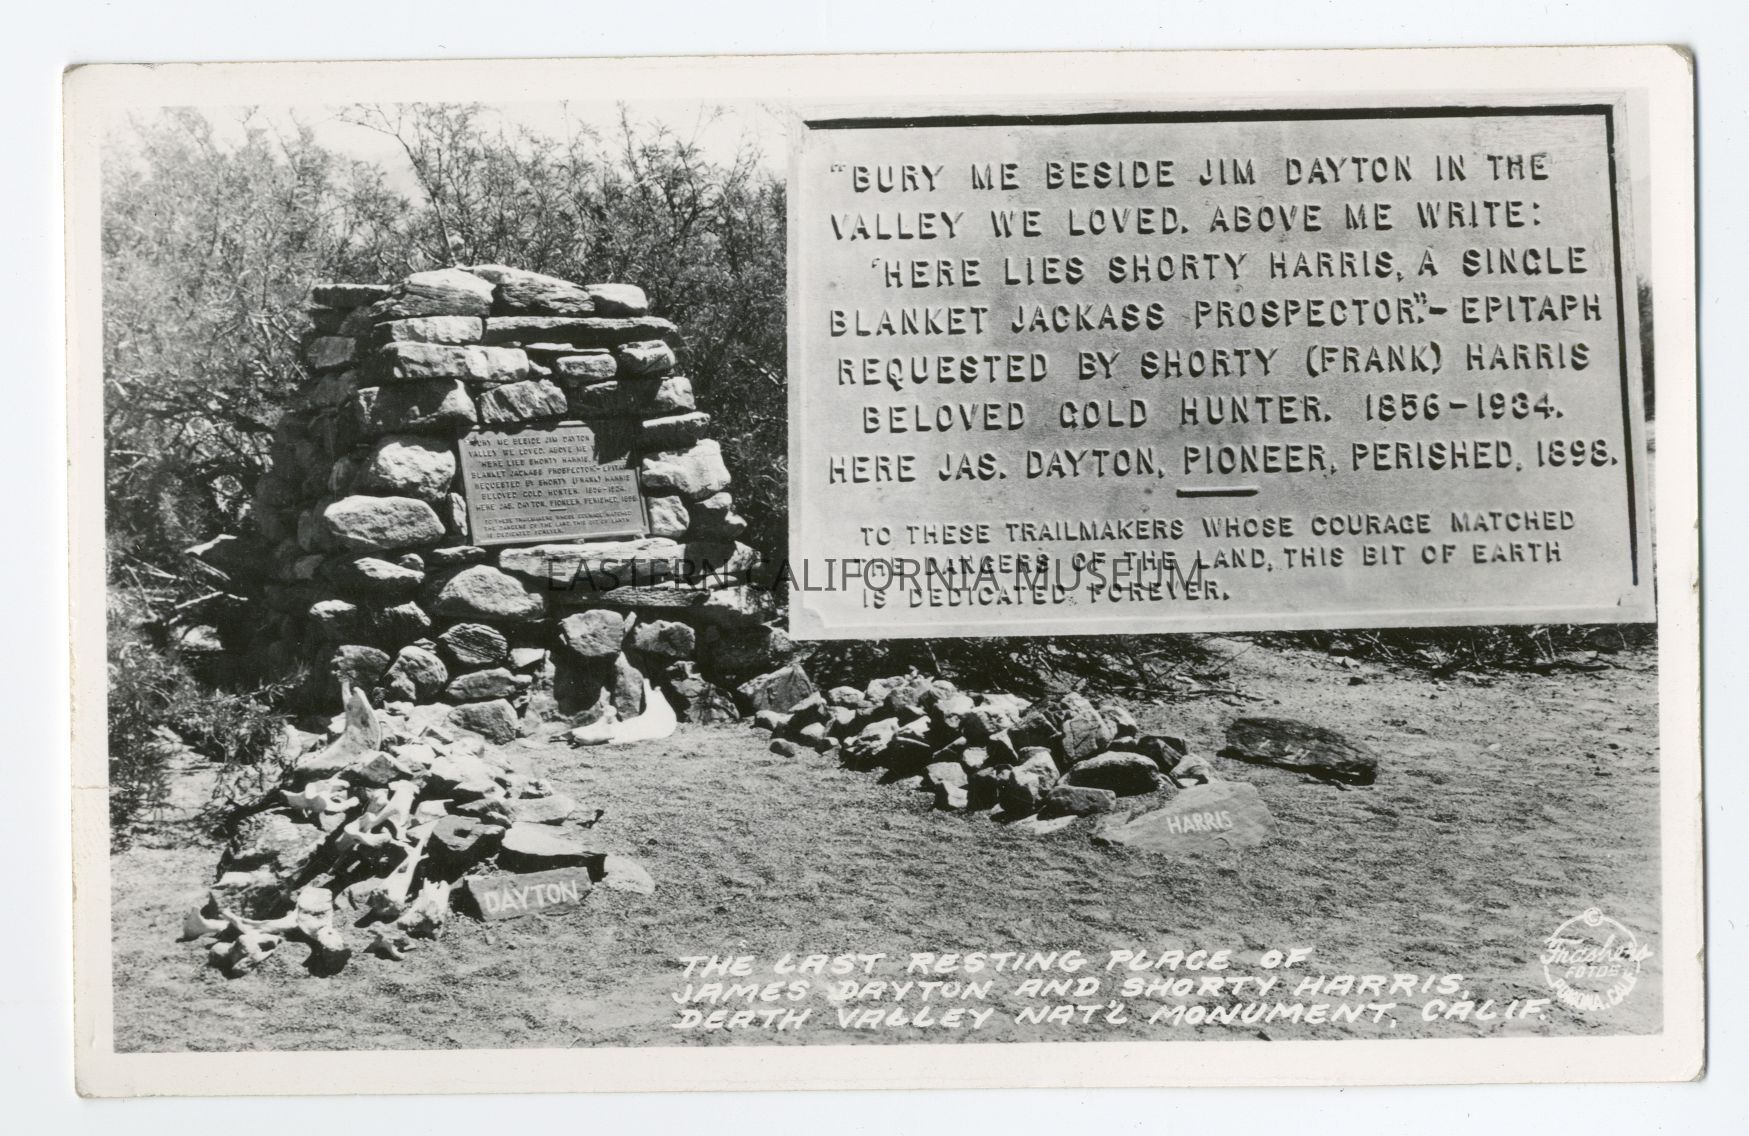 "BURY ME BESIDE JIM DAYTON IN THE
VALLEY WE LOVED. ABOVE ME WRITE:
'HERE LIES SHORTY HARRIS, A SINGLE
BLANKET JACKASS PROSPECTOR'."- EPITAPH
REQUESTED BY SHORTY (FRANK) HARRIS
BELOVED GOLD HUNTER. 1856-1934.
HERE JAS. DAYTON, PIONEER, PERISHED, 1898.
TO THESE TRAILMAKERS WHOSE COURAGE MATCHED
THE DANGERS OF THE LAND, THIS BIT OF EARTH
IS DEDICATED FOREVER.
"BURY ME BESIDE JIM DAYTON
VALLEY WE LOVED. ABOVE ME
'HERE LIES SHORTY HARRIS
BLANKET JACKASS PROSPECTOR'."- EPITAPH
REQUESTED BY SHORTY (FRANK) HARRIS
BELOVED GOLD HUNTER. 1856-1934.
HERE JAS. DAYTON, PIONEER, PERISHED, 1898.
TO THESE TRAILMAKERS WHOSE COURAGE MATCHED
THE DANGERS OF THE LAND, THIS BIT OF EARTH
IS DEDICATED FOREVER.
EASTERN CALIFORNIA MUSEUM
HARRIS
DAYTON
THE LAST RESTING PLACE OF
JAMES DAYTON AND SHORTY HARRIS,
DEATH VALLEY NAT'L MONUMENT, CALIF.
©
Frashers
FOTOS
POMONA, CALIF.